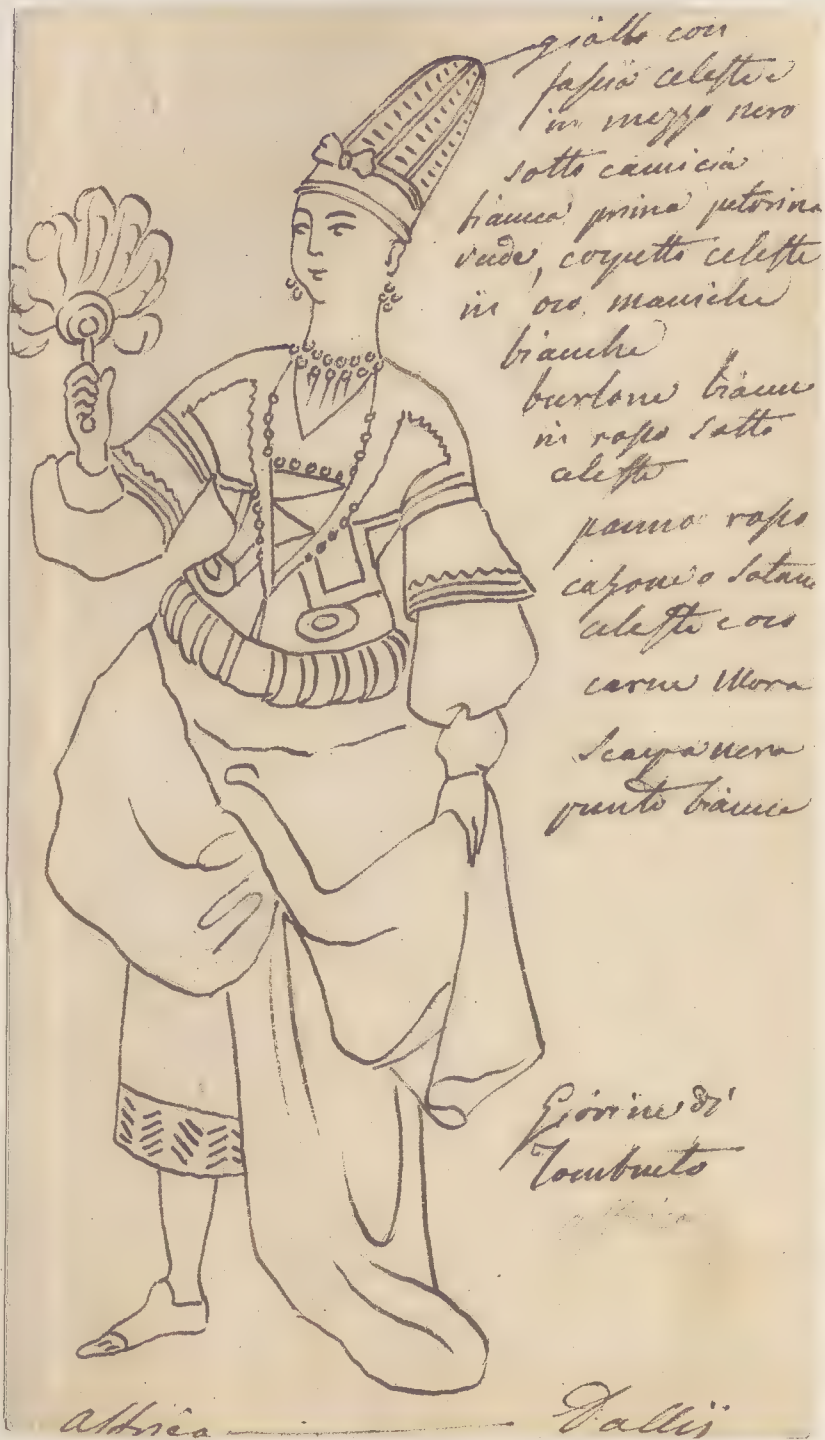 giallo con
fascia celeste e
in mezzo nero
sotto camicia
bianca prima petorina
verde, corpetto celeste
in oro maniche
bianche
burlone bianco
in raso sotto
celeste
panno raso
calzone o sotana
celeste e oro
carne Mora
Scarpa nera
punto bianca
Giovine di
Tombuto
Attrice Dallis